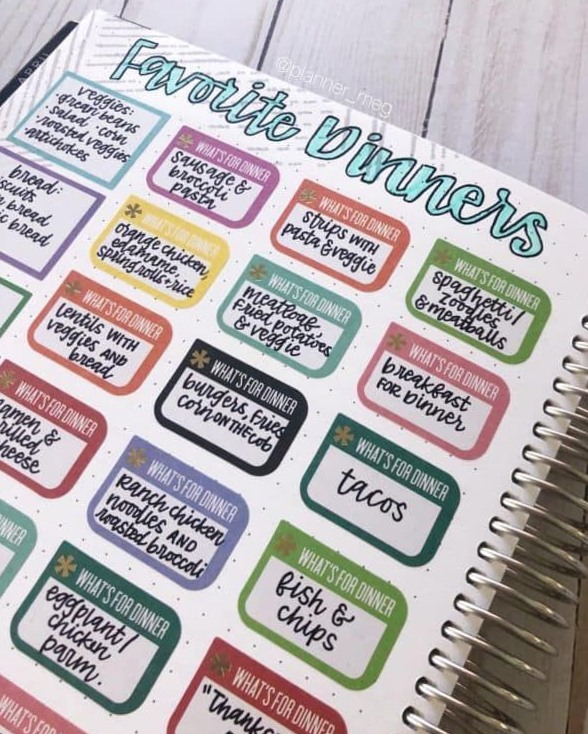 APRIL
@planner_meg
Favorite Dinners
veggies:
· green beans
· salad · corn
· roasted veggies
· artichokes
bread:
bread
bread
WHAT'S FOR DINNER
sausage &
broccoli
pasta
WHAT'S FOR DINNER
strips WITH
pasta & veggie
WHAT'S FOR DINNER
spaghetti/
zoodles
& meatballs
WHAT'S FOR DINNER
orange chicken
edamame,
springrolls + rice
WHAT'S FOR DINNER
meatloaf
fried potatoes
& veggie
WHAT'S FOR DINNER
breakfast
FOR Dinner
WHAT'S FOR DINNER
lentils WITH
veggies AND
bread
WHAT'S FOR DINNER
burgers, fries
CORN ON THE COB
WHAT'S FOR DINNER
tacos
WHAT'S FOR DINNER
&
WHAT'S FOR DINNER
Ranch chicken
noodles AND
roasted broccoli
WHAT'S FOR DINNER
fish &
chips
DINNER
WHAT'S FOR DINNER
eggplant/
chicken
parm.
WHAT'S FOR DINNER
WHAT'S FOR DINNER